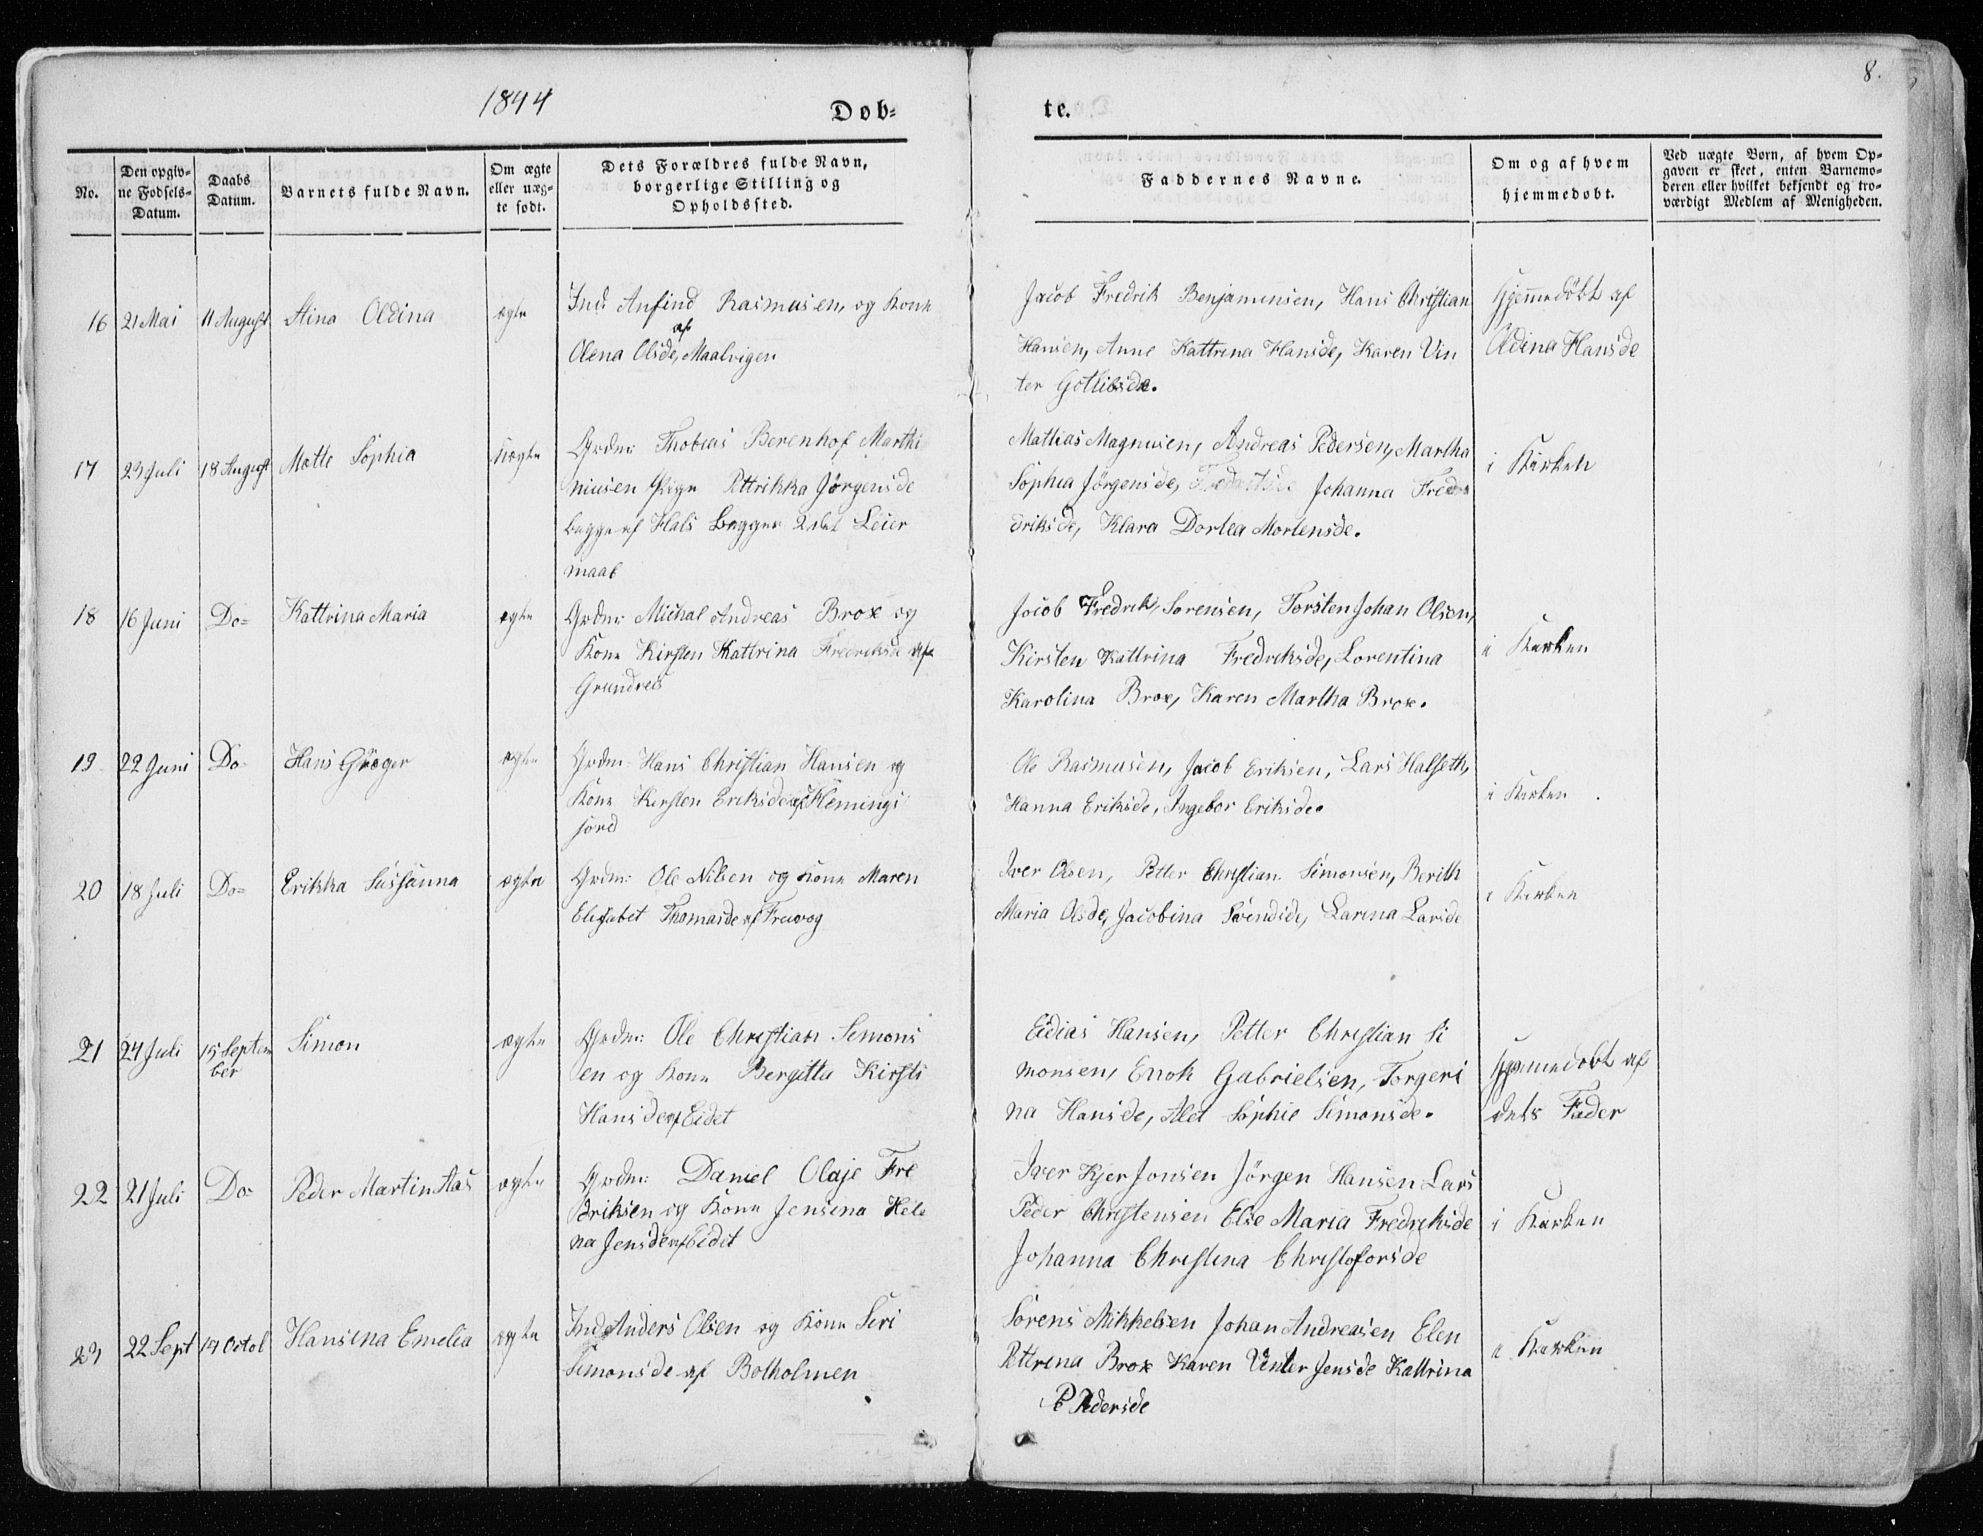 1844
Dob-
te.
8.
No.
Den opgiv-
ne Fodsels-
Datum.
Daabs
Datum.
Barnets fulde Navn.
Om ægte
eller uæg-
te født.
Dets Forældres fulde Navn,
borgerlige Stilling og
Opholdssted.
Faddernes Navne.
Om og af hvem
hjemmedobt.
Ved uægte Born, af hvem Op-
gaven er skeet, enten Barnemo-
deren eller hvilket bekjendt og tro-
værdigt Medlem af Menigheden.
16 21 Mai 11 August Stina Oldina ægte
Ind Anfind Rasmusen, og Kone
af
Olena Olsde, Maalvigen
Jacob Fredrik Benjaminsen, Hans Christian
Hansen, Anne Kattrina Hansde, Karen Vin
ter Gotlibsde.
Hjemmedöbt af
Oldina Hansde
17 23 Juli 18 August Matte Sophia uægte
Grdm: Thobias Berenhof Marthi
niusen Pige Pettrikka Jörgensde
begge af Hals Begges 2det Leier
maal
Mattias Magnusen, Andreas Pedersen, Martha
Sophia Jörgensde, Johanna Fred
driksde, Klara Dortea Mortensde.
i Kirken
18 16 Juni Do= Kattrina Maria ægte
Grdm: Michal Andreas Brox og
Kone Kirsten Kattrina Fredriksde af
Grundreis
Jocob Fredrik Sorensen, Torsten Johan Olsen,
Kirsten Kattrina Fredriksde, Lorentina
Karolina Brox, Karen Martha Brox.
i Kirken
19 22 Juni Do= Hans Gröger ægte
Grdm: Hans Christian Hansen og
Kone Kirsten Eriksde af Klemingi
fjord
Ole Rasmusen, Jacob Eriksen, Lars Halseth,
Hanna Eriksde, Ingebor Eriksde.
i Kirken
20 18 Juli Do= Erikka Susanna ægte
Grdm: Ole Nilsen og Kone Maren
Elisabet Thomasde af Trevog
Iver Olsen, Petter Christian Simonsen, Berith
Maria Olsde, Jacobina Svendsde, Larina Larsde
i Kirken
21 24 Juli 15 Septem
ber
Simon ægte
Grdm: Ole Christian Semons
en og Kone Bergitta Kirsti
Hansde af Eidet
Edias Hansen, Petter Christian Si
monsen, Enok Gabrielsen, Torgeri
na Hansde, Alet Sophie Simonsde.
Hjemmedobt af
dets Fader
22 21 Juli Do= Peder Martin ægte
Grdm: Daniel Olaje Fre
driksen og Kone Jensina Hele
na Jensde af Eidet
Iver Kjer Jonsen Jörgen Hansen Lars
Peder Christensen Else Maria Fredriksde
Johanna Christina Christoforsde
i Kirken
23 22 Sept 14 Octob Hansina Emelia ægte
Ind Anders Olsen og Kone Seri
Simonsde af Bolholmen
Sorens Mikkelsen Johan Andreasen Elen
Pettrina Brox Karen Vinter Jensde Kattrina
Pedersde
i Kirken